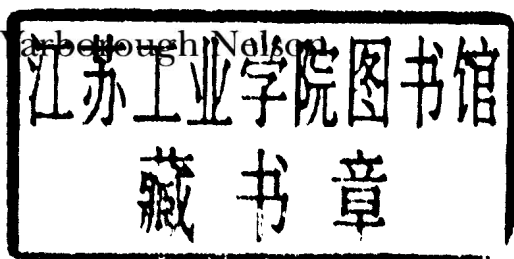 Yarborough Nelson
江苏工业学院图书馆
藏书章